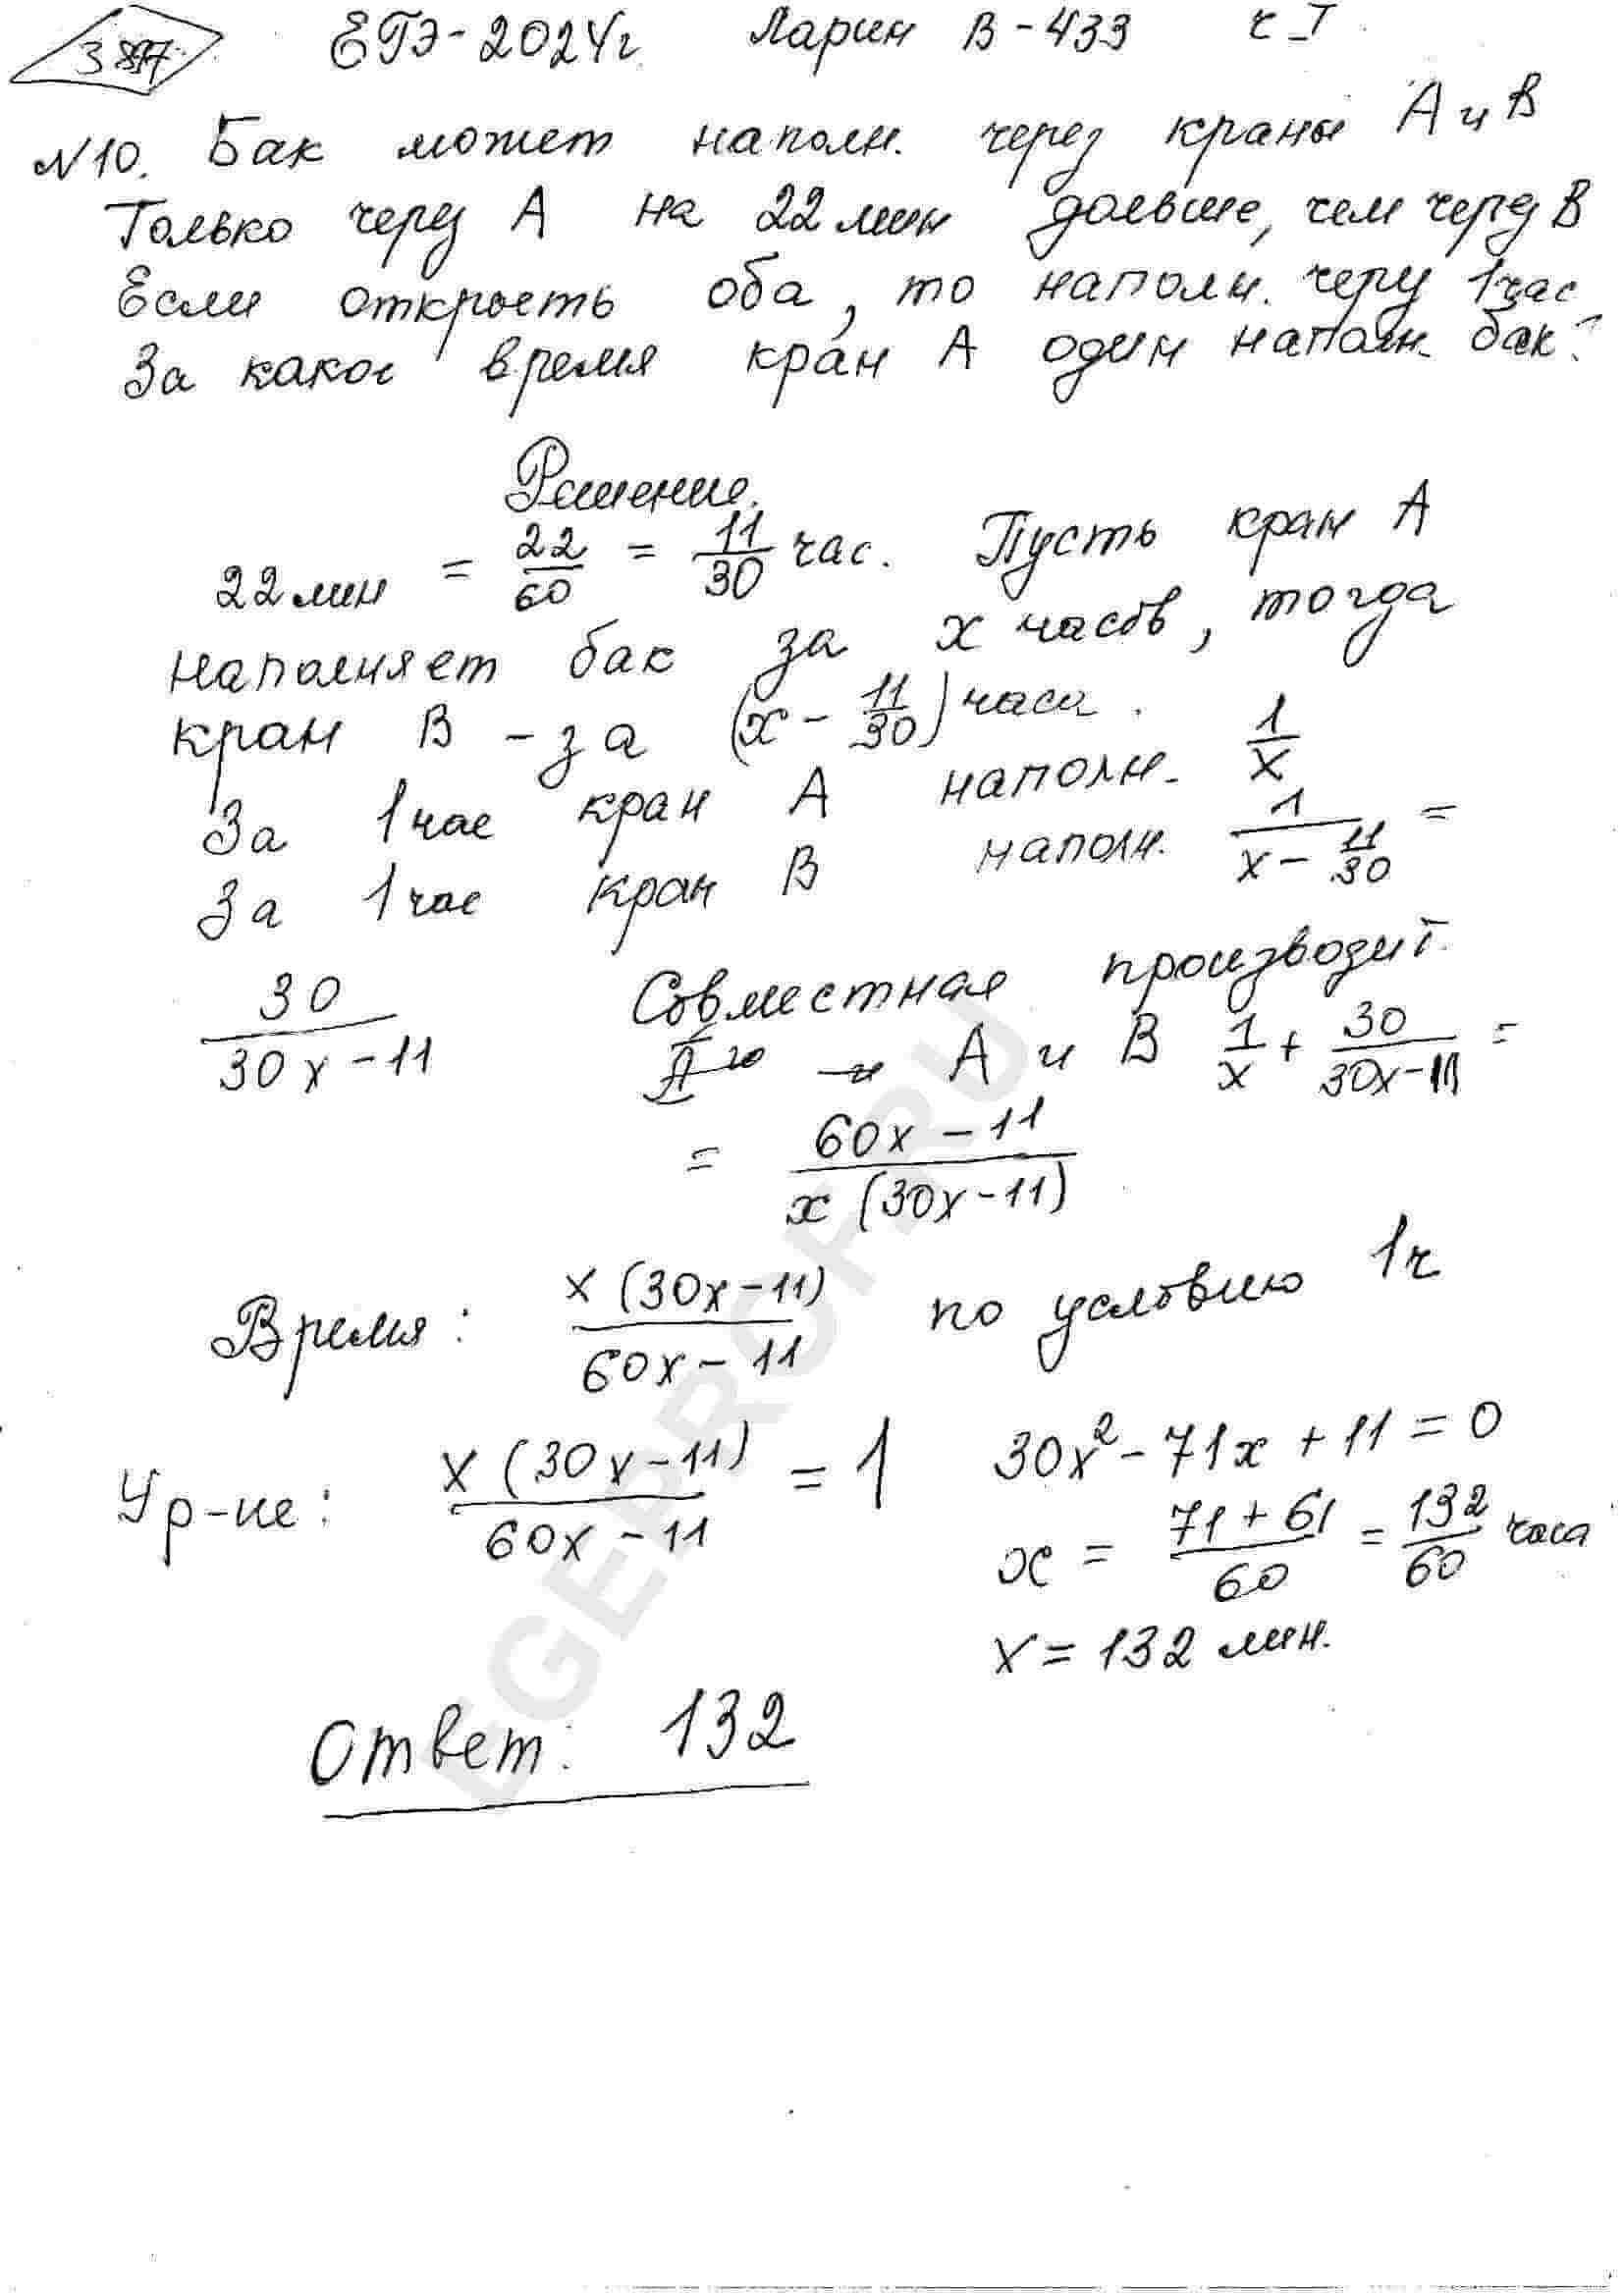 ЕГЭ-2024г. Ларин В-433 ч I
№10. Бак может наполн. через краны А и В
Только через А на 22 мин дольше, чем через В
Если открыть оба, то наполн. через 1 час
За какое время кран А один наполн. бак?
Решение.
22 мин = 22/60 = 11/30 час. Пусть кран А
наполняет бак за x часов, тогда
кран В - за (x - 11/30) часа.
За 1 час кран А наполн. 1/x
За 1 час кран В наполн. 1/(x - 11/30) =
30/(30x - 11) Совместная производит.
А и В 1/x + 30/(30x-11) =
= (60x - 11)/(x (30x-11))
Время: x (30x-11)/(60x - 11) по условию 1ч
Ур-ие: x (30x-11)/(60x - 11) = 1 30x² - 71x + 11 = 0
x = (71 + 61)/60 = 132/60 часа
x = 132 мин.
Ответ: 132
EGEPROF.RU